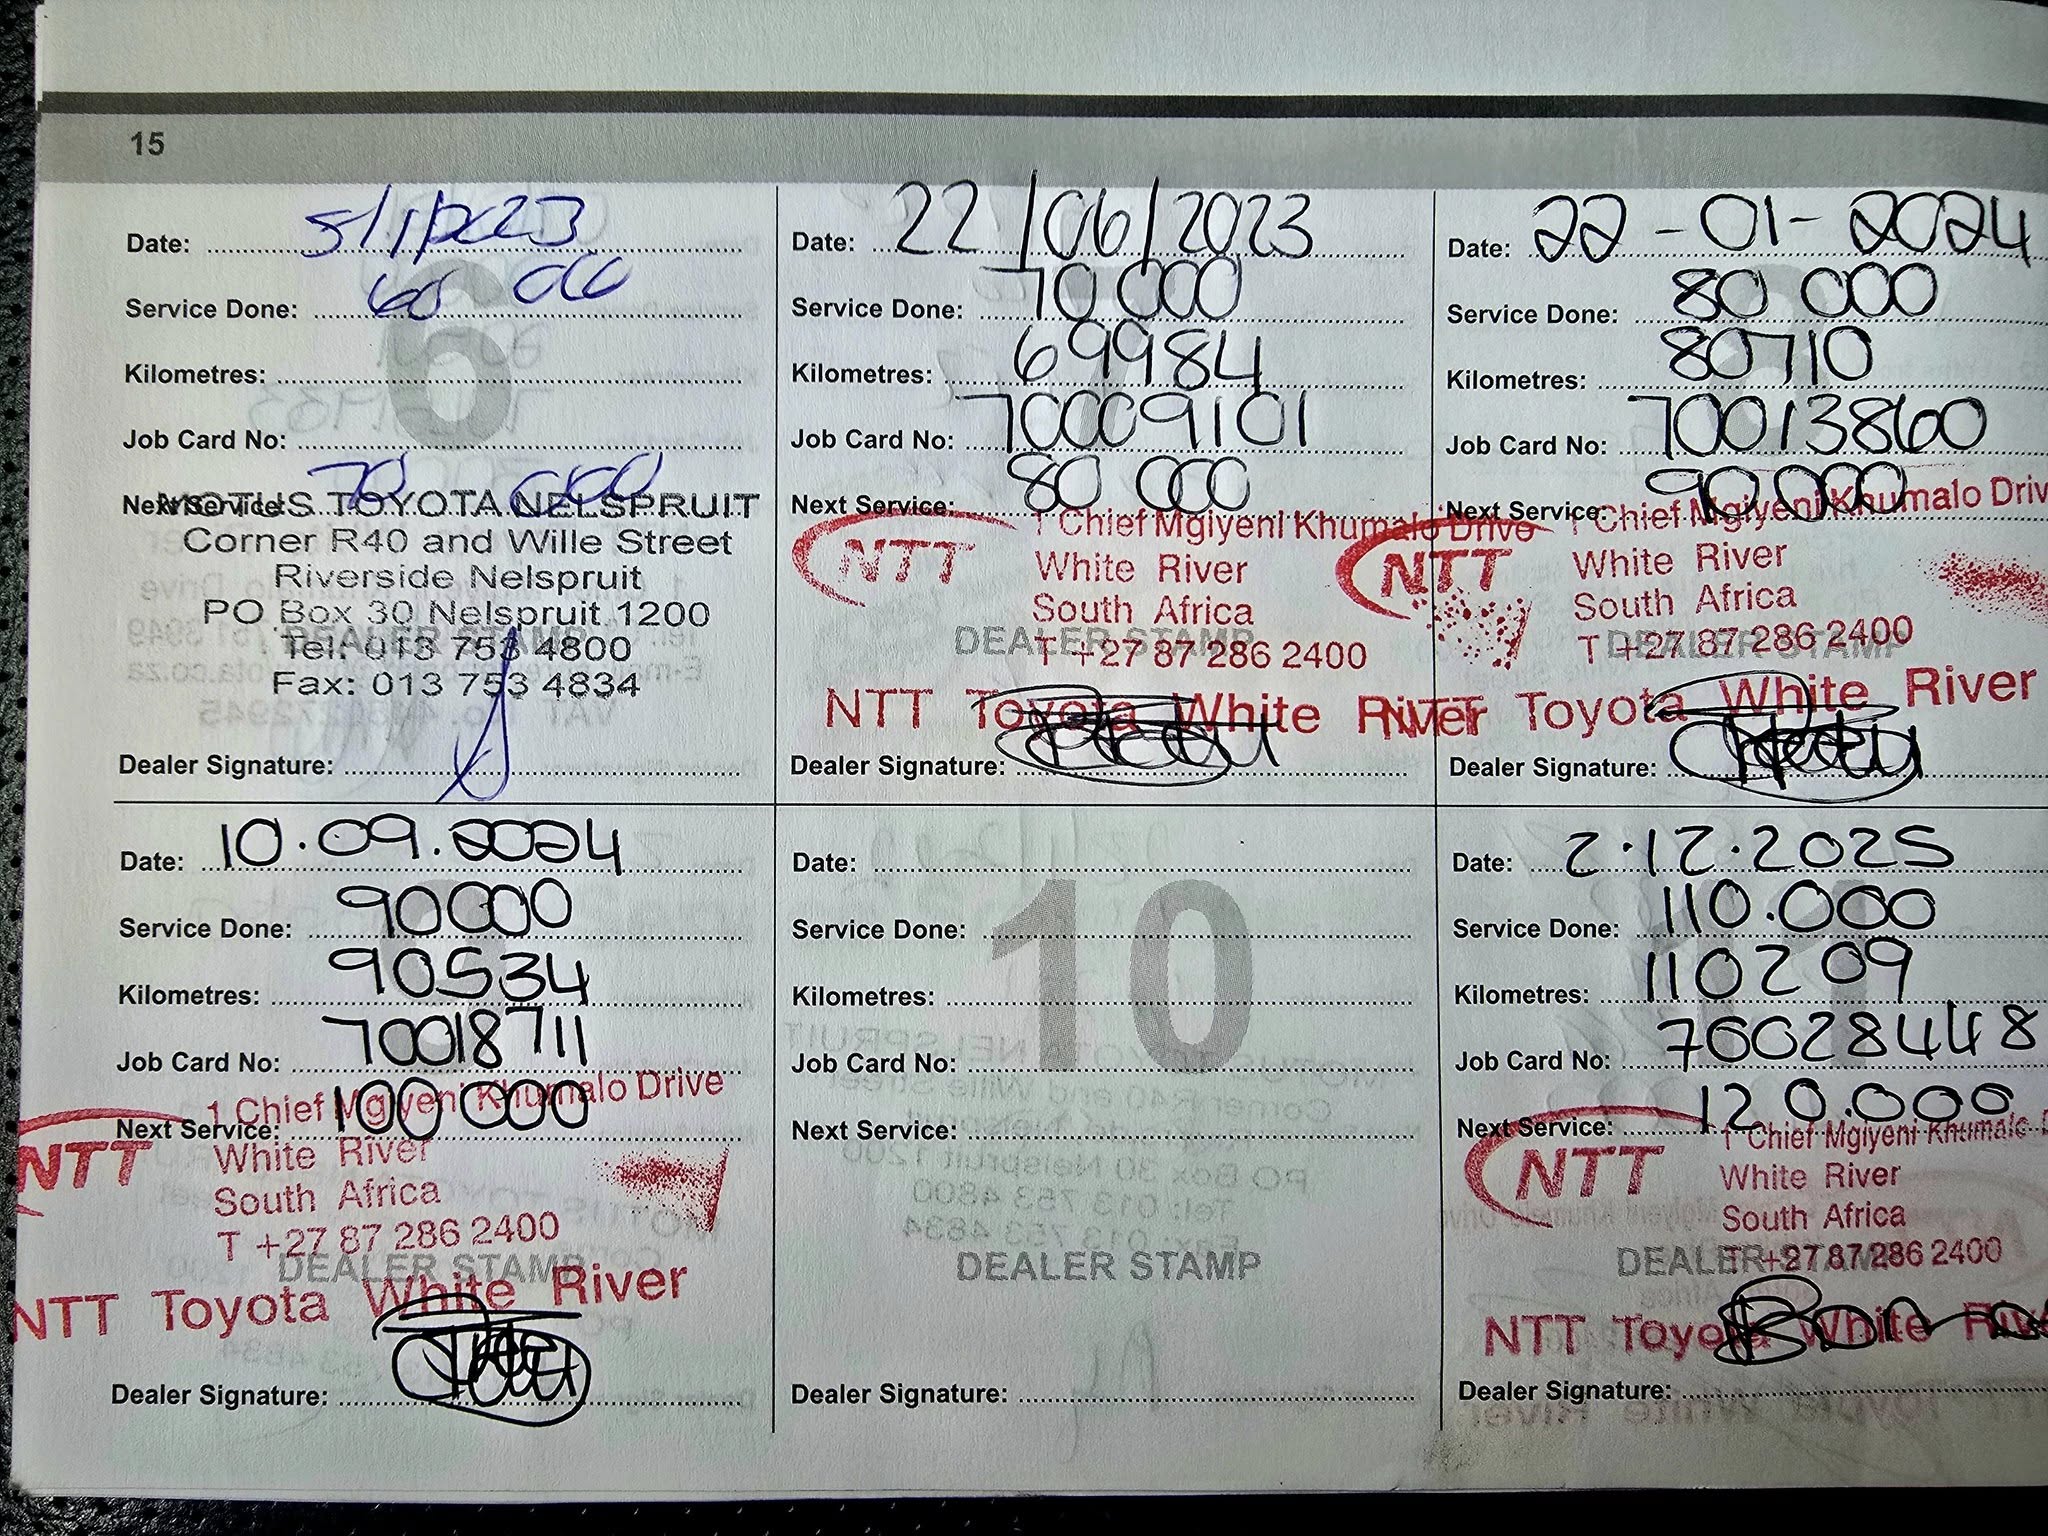 15
Date: 5/1/2023
Service Done: 60 000
Kilometres:
Job Card No:
Next Service: 70 000
MOTUS TOYOTA NELSPRUIT
Corner R40 and Wille Street
Riverside Nelspruit
PO Box 30 Nelspruit 1200
Tel: 013 753 4800
Fax: 013 753 4834
DEALER STAMP
Dealer Signature:
6
Date: 22/06/2023
Service Done: 70 000
Kilometres: 69984
Job Card No: 70009101
Next Service: 80 000
NTT
1 Chief Mgiyeni Khumalo Drive
White River
South Africa
T +27 87 286 2400
DEALER STAMP
NTT Toyota White River
Dealer Signature:
Date: 22-01-2024
Service Done: 80 000
Kilometres: 80710
Job Card No: 70013860
Next Service: 90 000
NTT
1 Chief Mgiyeni Khumalo Driv
White River
South Africa
T +27 87 286 2400
DEALER STAMP
NTT Toyota White River
Dealer Signature:
Date: 10.09.2024
Service Done: 90000
Kilometres: 90534
Job Card No: 70018711
Next Service: 100 000
NTT
1 Chief Mgiyeni Khumalo Drive
White River
South Africa
T +27 87 286 2400
DEALER STAMP
NTT Toyota White River
Dealer Signature:
Date:
Service Done:
Kilometres:
Job Card No:
Next Service:
10
DEALER STAMP
Dealer Signature:
Date: 2.12.2025
Service Done: 110.000
Kilometres: 110209
Job Card No: 76028448
Next Service: 120.000
NTT
1 Chief Mgiyeni Khumalo D
White River
South Africa
T +27 87 286 2400
DEALER STAMP
NTT Toyota White Rive
Dealer Signature: